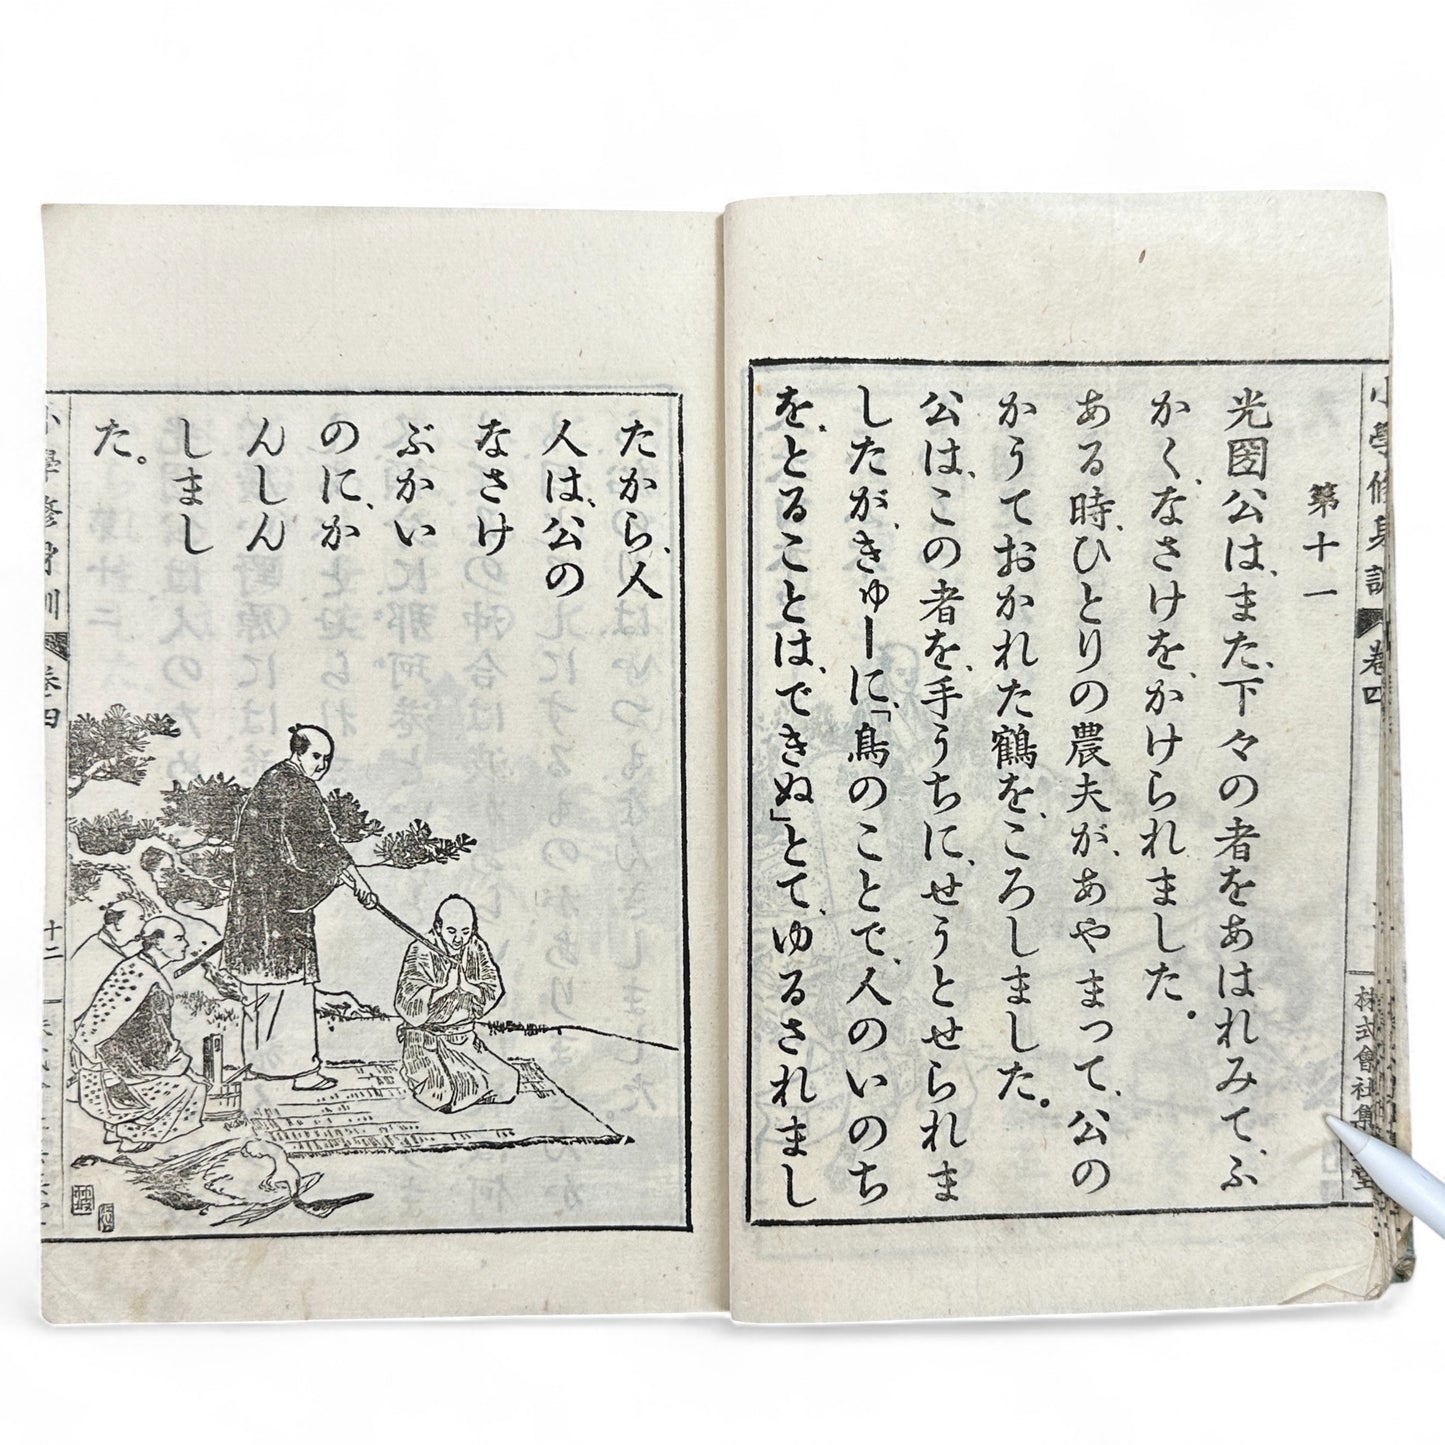 小學修身訓 卷四
株式會社集
堂
第十一
光圀公は、また、下々の者をあはれみて、ふ
かく、なさけを、かけられました。
ある時、ひとりの農夫が、あやまつて、公の
かうておかれた鶴を、ころしました。
公は、この者を、手うちに、せうとせられま
したが、きゅーに、「鳥のことで、人のいのち
を、とることは、できぬ」とて、ゆるされまし
たから、人
人は、公の
なさけ
ぶかい
のに、か
んしん
しまし
た。
小學修身訓 卷四
十二